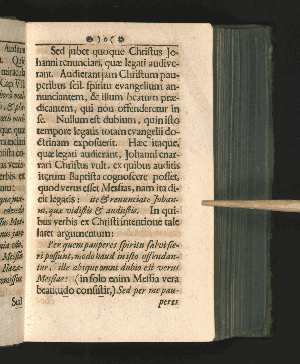 Sed jubet quoque Christus Jo-
hanni renunciari, quæ legati audive-
rant. Audierant jam Christum pau-
peribus scil. spiritu evangelium an-
nunciantem, & illum beatum præ-
dicantem, qui non offenderetur in
se. Nullum est dubium, quin isto
tempore legatis totam evangelii do-
ctrinam exposuerit. Hæc itaque,
quæ legati audierant, Johanni enar-
rari Christus vult, ex quibus auditis
iterum Baptista cognoscere posset,
quod verus esset Messias, nam ita di-
cit legatis: ite & renunciate Johan-
ni, quæ vidistis & audistis. In qui-
bus verbis ex Christi intentione tale
latet argumentum:
Per quem pauperes spiritu salvi fie-
ri possunt, modo haud in isto offendan-
tur, ille absque omni dubio est verus
Messias: (in solo enim Messia vera
beatitudo consistit.) Sed per me pau-
peres